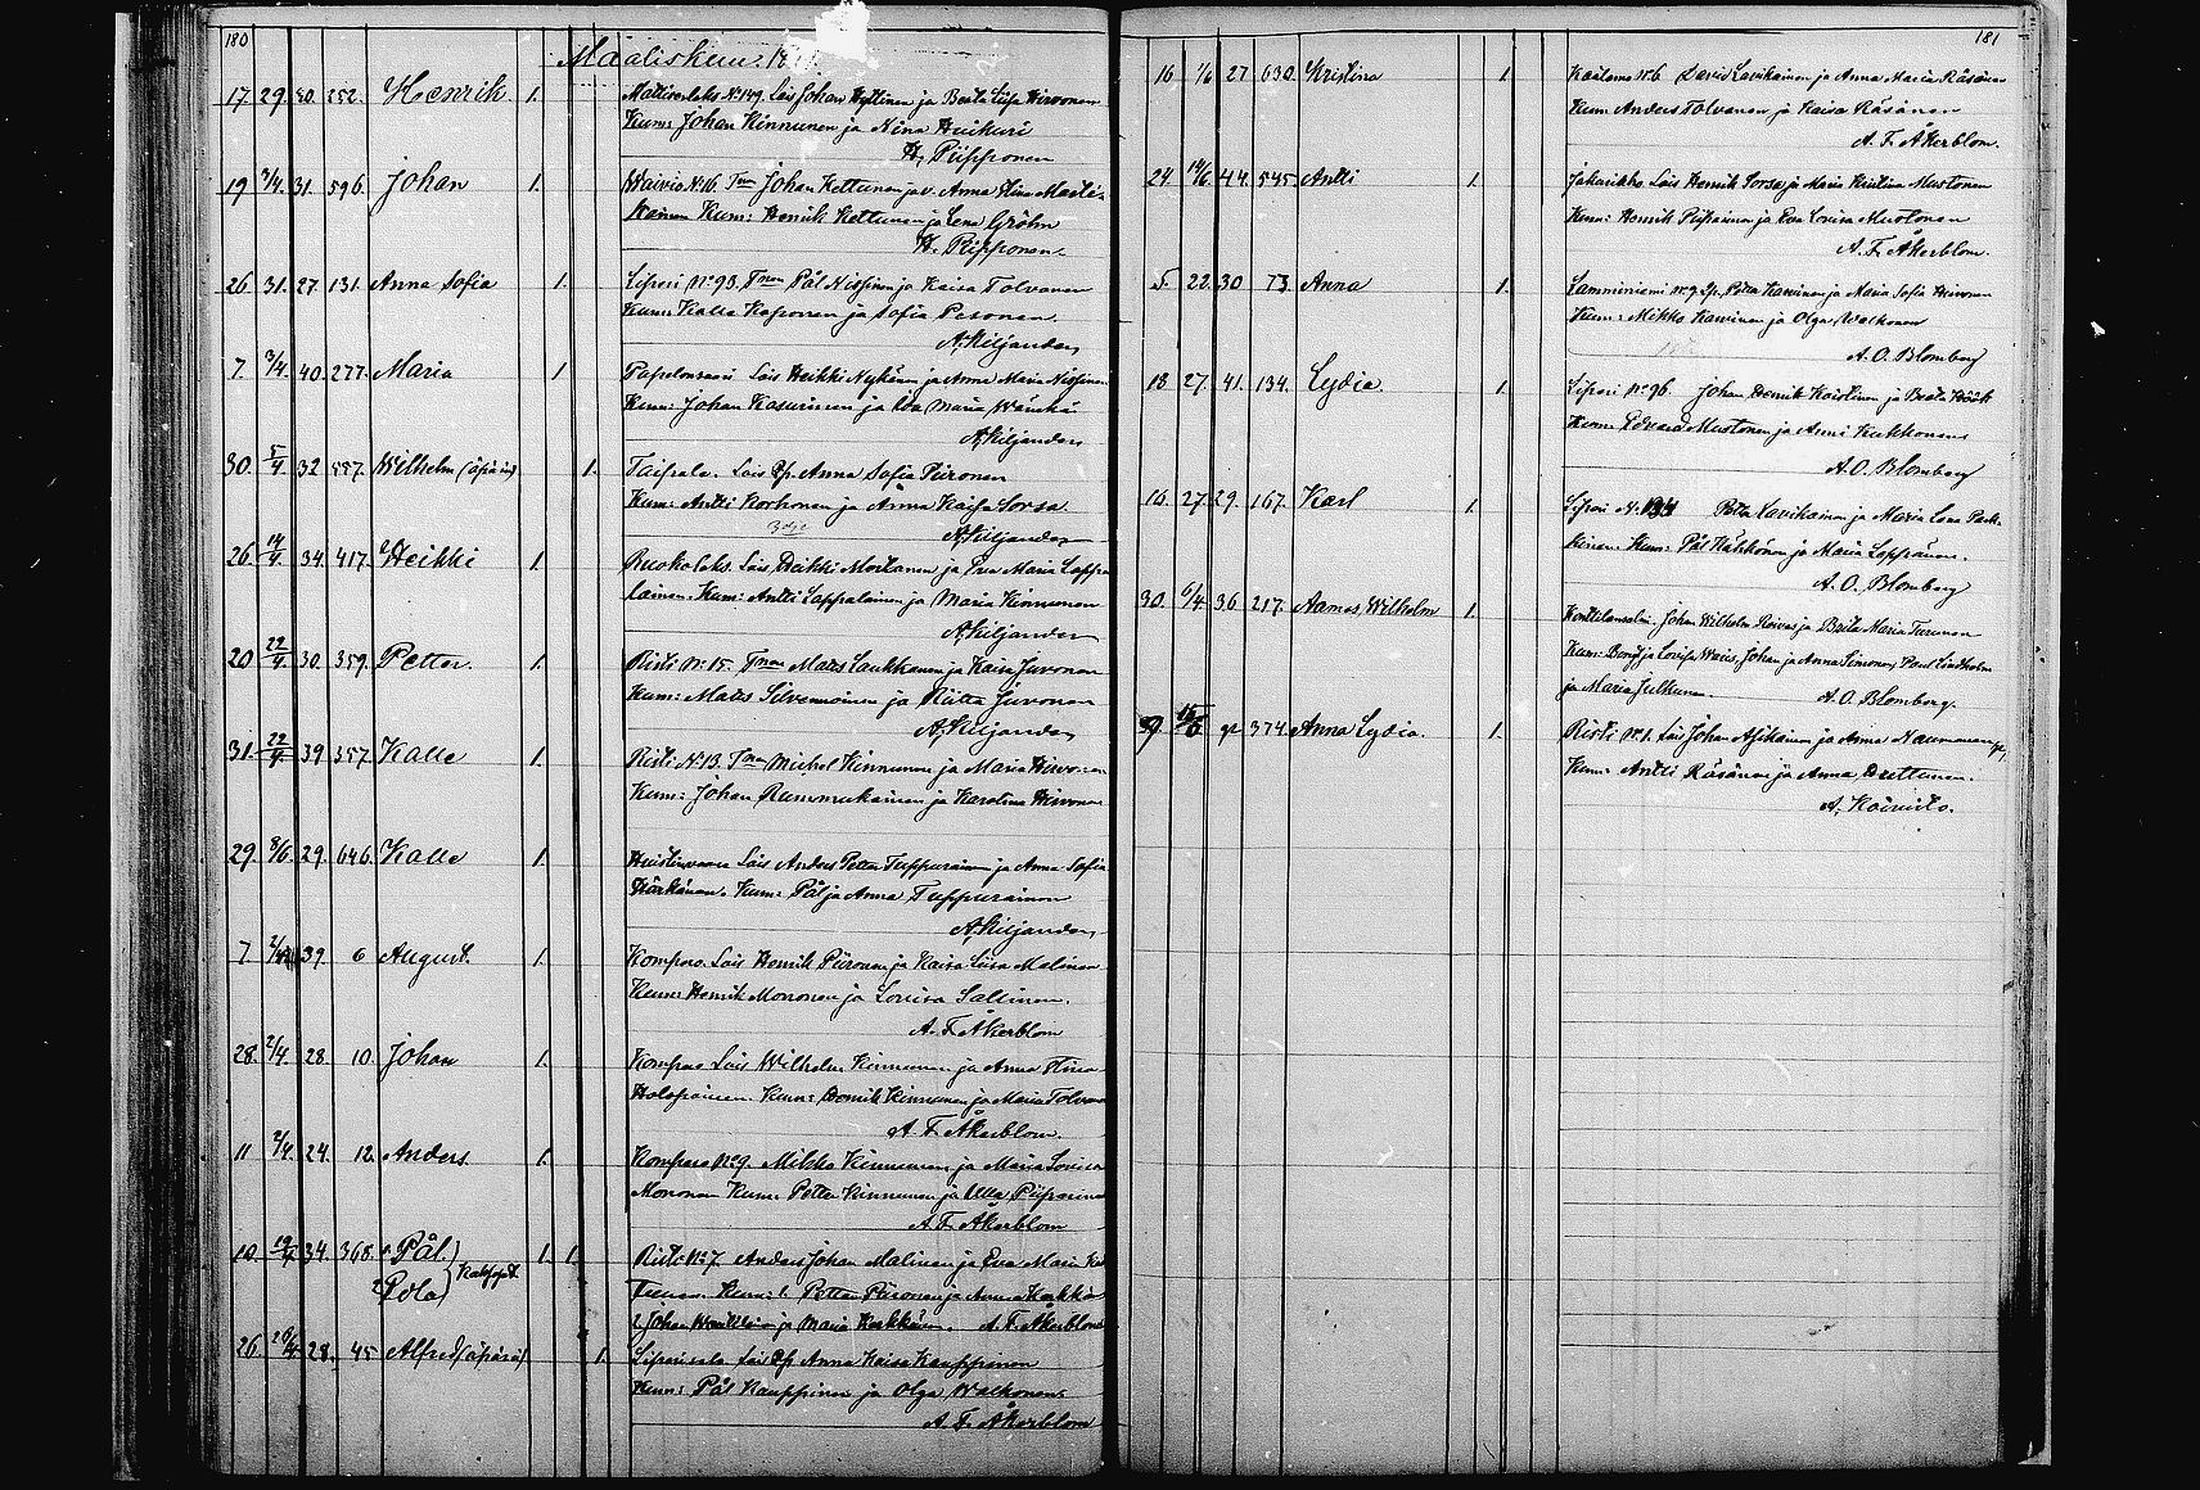 180
Maaliskuu. 18
17. 29. 30. 252. Henrik. 1. Mattisenlaks No 149. Lois Johan Hyttinen ja Beata Liisa Hirvonen
Kum: Johan Kinnunen ja Nina Huikuri
H. Piipponen
19 3/4. 31. 596. Johan 1. Waivio N:16. Tmn Johan Kettunen ja v. Anna Stina Marti-
kainen Kum: Henrik Kettunen ja Lena Gröhn
H. Piipponen.
26. 31. 27. 131. Anna Sofia 1. Liperi No 93. Tman Pål Nissinen ja Kaisa Tolvanen
Kum: Kalle Kaponen ja Sofia Pesonen.
A. Kiljander
7. 3/4. 40. 277. Maria 1 Papelonsaari Lois Heikki Nykänen ja Anna Maria Nissinen
Kum: Johan Kasurinen ja Eva Maria Wänskä.
A. Kiljander
30. 5/4. 32 557. Wilhelm (äpärä) 1. Taipale. Lois Pp. Anna Sofia Piironen
Kum: Antti Korhonen ja Anna Kaisa Sorsa.
A. Kiljander
26. 14/4. 34. 417. Heikki 1. Ruokolaks. Lois Heikki Mustonen ja Eva Maria Lappa
lainen. Kum: Antti Lappalainen ja Maria Kinnunen
A. Kiljander
20 22/4. 30. 359. Petter. 1. Risti N:15. Tman Mats Laukkanen ja Kaisa Juvonen
Kum: Mats Silvennoinen ja Riitta Juvonen
A. Kiljander
31. 22/4. 39 357. Kalle 1. Risti N:13. Tman Mickel Kinnunen ja Maria Hirvonen
Kum: Johan Rummukainen ja Karolina Hirvonen
29. 8/6. 29. 646. Kalle 1. Lois Anders Petter Tuppurainen ja Anna Sofia
Kärkänen. Kum: Pål ja Anna Tuppurainen
A. Kiljander
7. 39. 6 August. 1. Kompero. Lois Henrik Piironen ja Kaisa Liisa Malinen
Kum: Henrik Mononen ja Lovisa Sallinen.
A. F. Åkerblom
28. 2/4. 28. 10. Johan 1. Kompero Lois Wilhelm Kinnunen ja Anna Stina
Holopainen. Kum: Henrik Kinnunen ja Maria Tolvanen
A. F. Åkerblom.
11 2/4. 24. 12. Anders. 1. Kompero No 9. Mikko Kinnunen ja Maria Lovisa
Mononen Kum: Petter Kinnunen ja Ulla Piiparinen
A. F. Åkerblom
10. 19/4 34. 368. 1. Pål. 1. 1. Risti No 7. Anders Johan Malinen ja Eva Maria
2 Eva Kaksoset. Kum: 1. Petter Piironen ja Anna
2 Johan ja Maria A. F. Åkerblom
26. 26/4. 28. 45 Alfred (äpärä) 1. Liperinsalo Lois Pp Anna Kaisa Kauppinen
Kum: Pål Kauppinen ja Olga Walkonen.
A. F. Åkerblom
181
16 1/6 27 630. Kristina 1. Kaalamo N:6 David Lavikainen ja Anna Maria Räsänen
Kum Anders Tolvanen ja Kaisa Räsänen
A. F. Åkerblom.
24. 14/6. 44. 545 Antti 1. Jakarikko Lois Henrik Sorsa ja Maria Kristina Mustonen
Kum: Henrik Piiparinen ja Eva Lovisa Mustonen
A. F. Åkerblom.
5. 22. 30 73. Anna 1. Lamminniemi N:9 Petter Karvinen ja Maria Sofia Hirvonen
Kum: Mikko Karvinen ja Olga Walkonen
A. O. Blomberg
18 27. 41. 134. Lydia. 1. Liperi No 96. Johan Henrik Koistinen ja Beata Höök
Kum. Edvard Mustonen ja Anni Kukkonen
A. O. Blomberg
16. 27. 29. 167. Karl 1. Liperi N. 134 Petter Lavikainen ja Maria Lena Park-
kinen. Kum: Pål Kähkönen ja Maria Loppönen.
A. O. Blomberg
30. 6/4 36 217. Aamos, Wilholm 1. Konttilansalmi. Johan Wilhelm Roivas ja Brita Maria Turunen
Kum: ja Lovisa Waris, Johan ja Anna Simonen, Paul Lindholm
ja Maria Julkunen. A. O. Blomberg.
374. Anna Lydia. 1. Risti No 1. Lois Johan Asikainen ja Anna Naumanen
Kum: Antti Räsänen ja Anna
A. Koivisto.